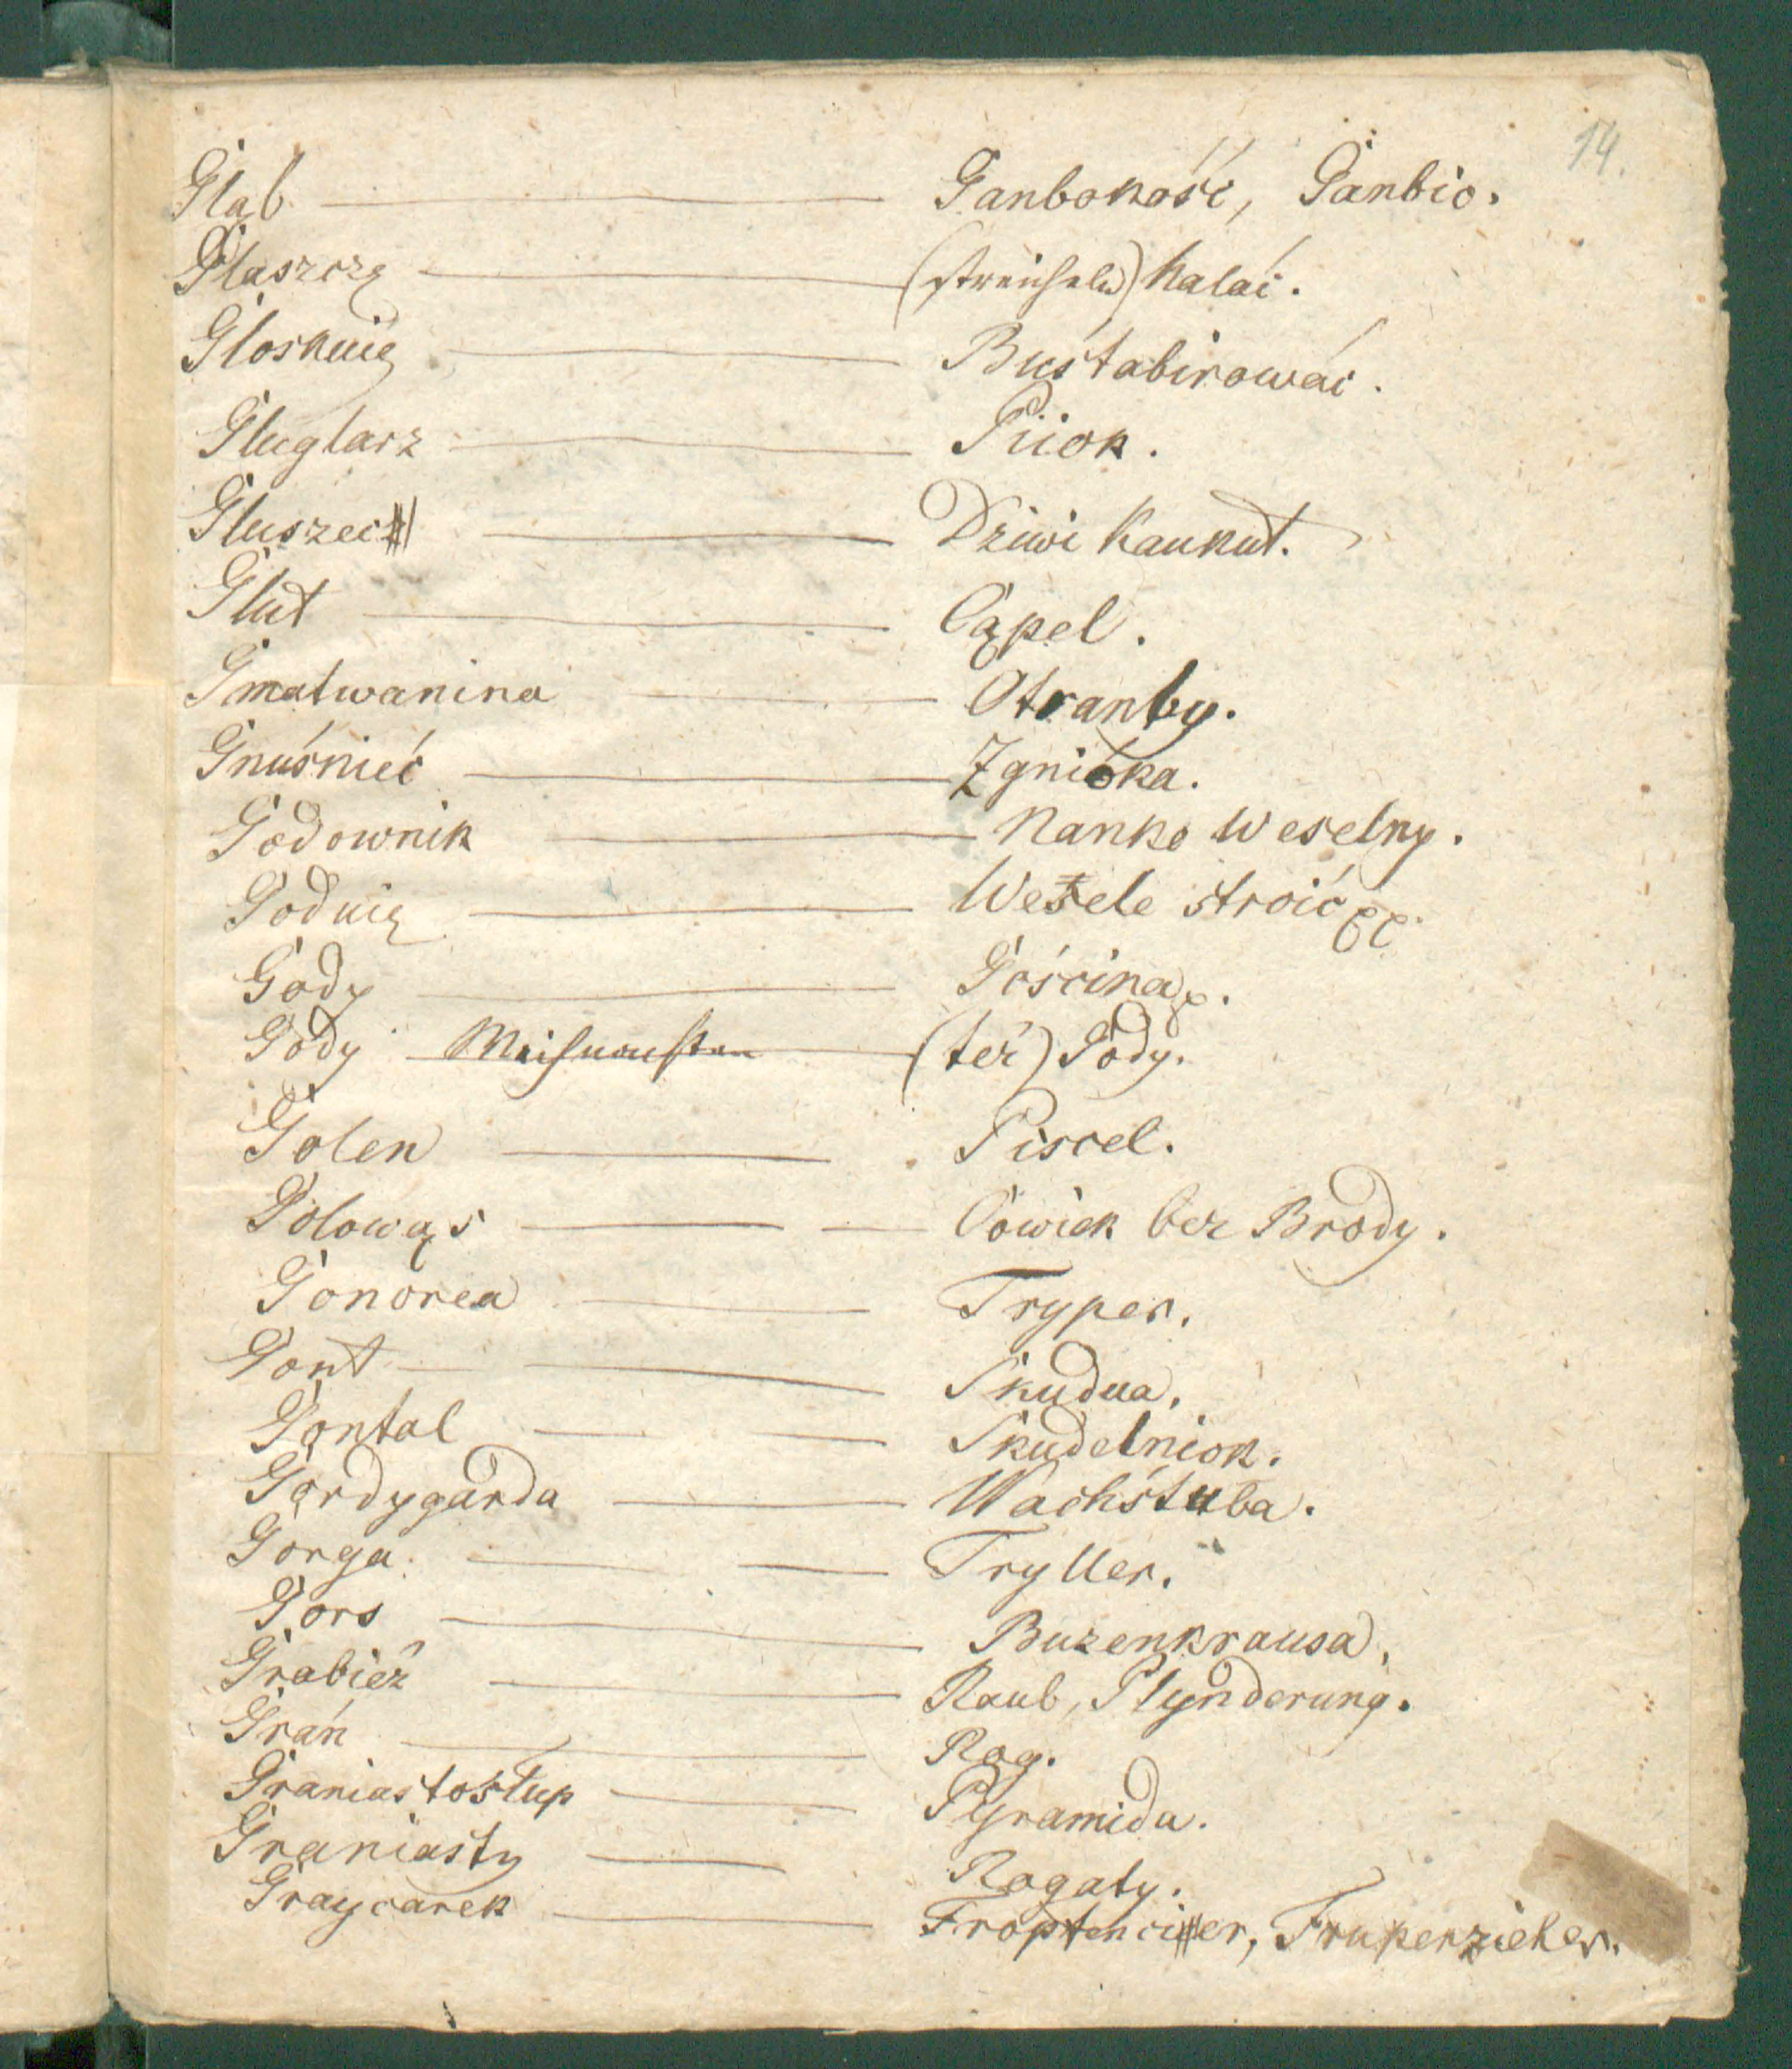 14.
Gląb — Ganbokość, Ganbio.
Glaszczę — (streicheln) kalać.
Gloskuię — Buśtabirować.
Gluglarz — Piiok.
Gluszec — Dziwi Kaukut.
Glut — Cąpel.
Gmatwanina — Otranby.
Gnuśnieć — Zgniöka.
Godownik — Nanko Weselny.
Goduię — Wesele stroić
Gody — Gościna
Gody — Weihnachten — (też) Gody.
Golen — Piscel.
Golowąs — Cowiek bez Brody.
Gonorea — Tryper.
Gont — Skudua.
Gontal — Skudelniok.
Gordygarda — Wachśtuba.
Gorga — Tryller.
Gors — Buzenkrausa,
Grabież — Raub, Plynderung.
Grań — Rog.
Graniastosłup — Pyramida.
Graniasty — Rogaty.
Graycarek — Froptencier, Fruperzieher.